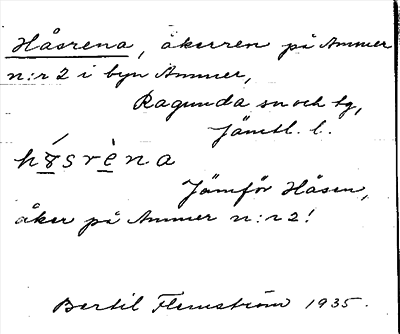 Håsrena, åkerren på Ammer
n:r 2 i byn Ammer,
Ragunda sn och tg,
Jämtl. l.
håsrèna
Jämför Håsen,
åker på Ammer n:r 2!
Bertil Flemström 1935.